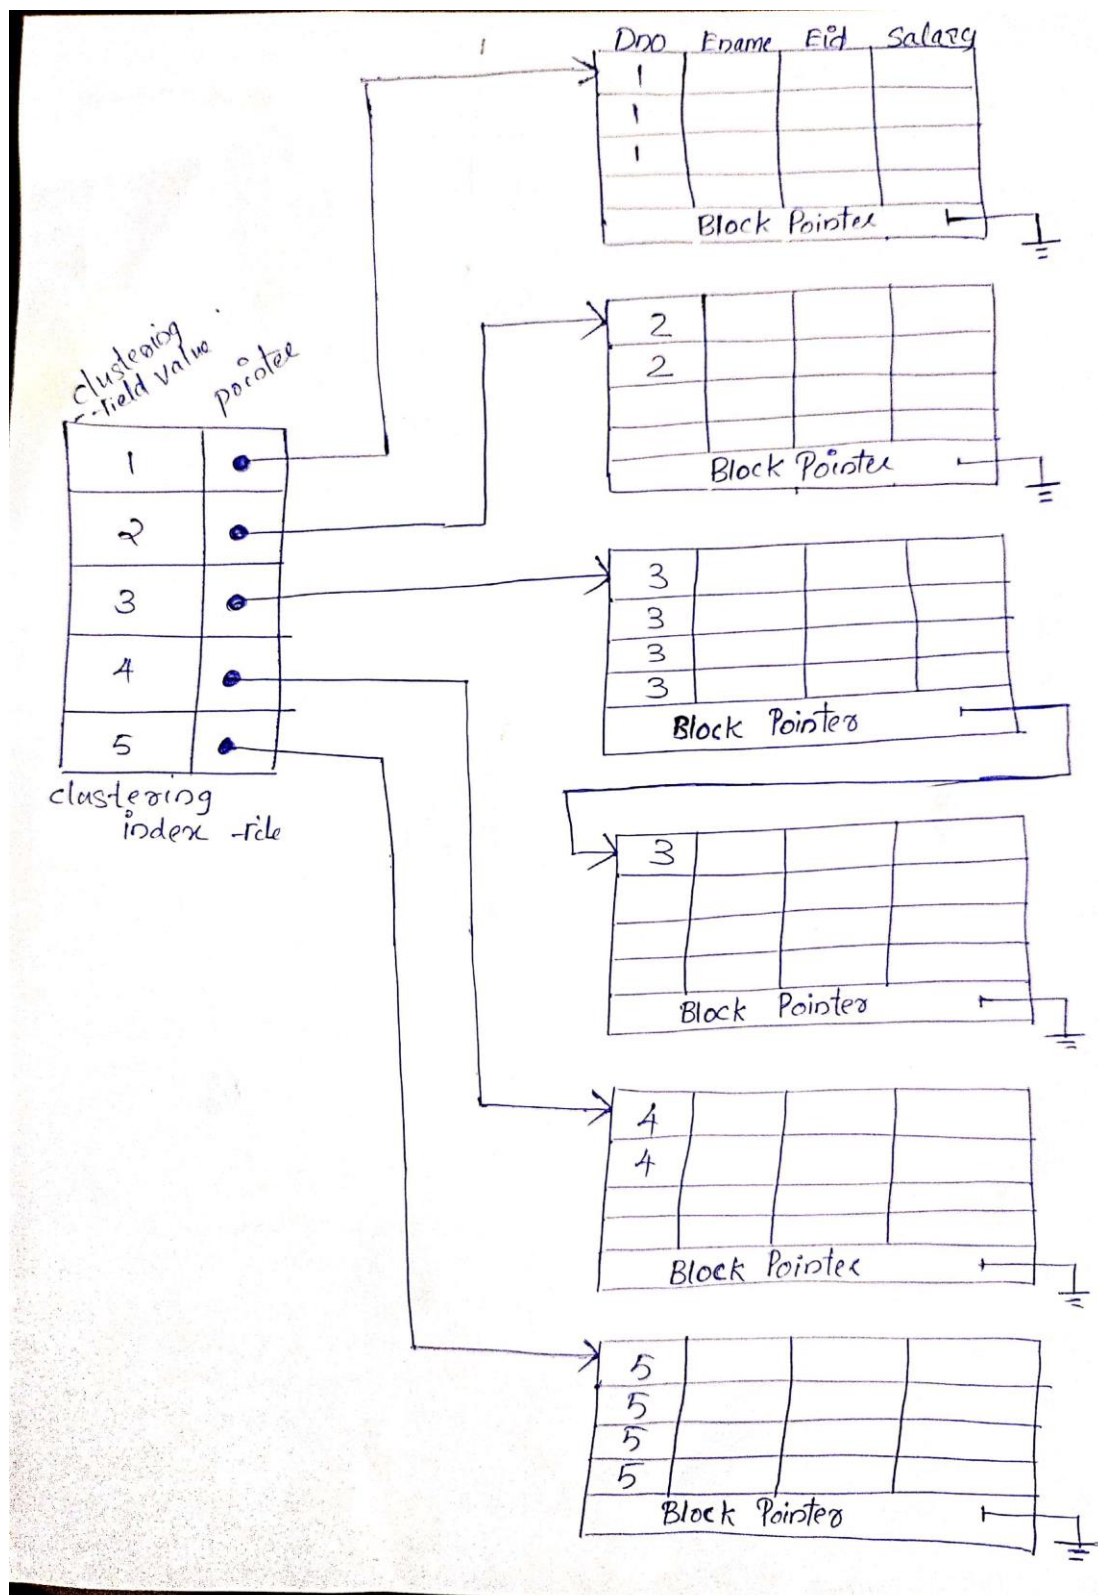 1
Dno Ename Eid Salary
1
1
1
Block Pointer
2
2
Block Pointer
clustering
field value
pointer
1
2
3
4
5
clustering
index file
3
3
3
3
Block Pointer
3
Block Pointer
4
4
Block Pointer
5
5
5
5
Block Pointer